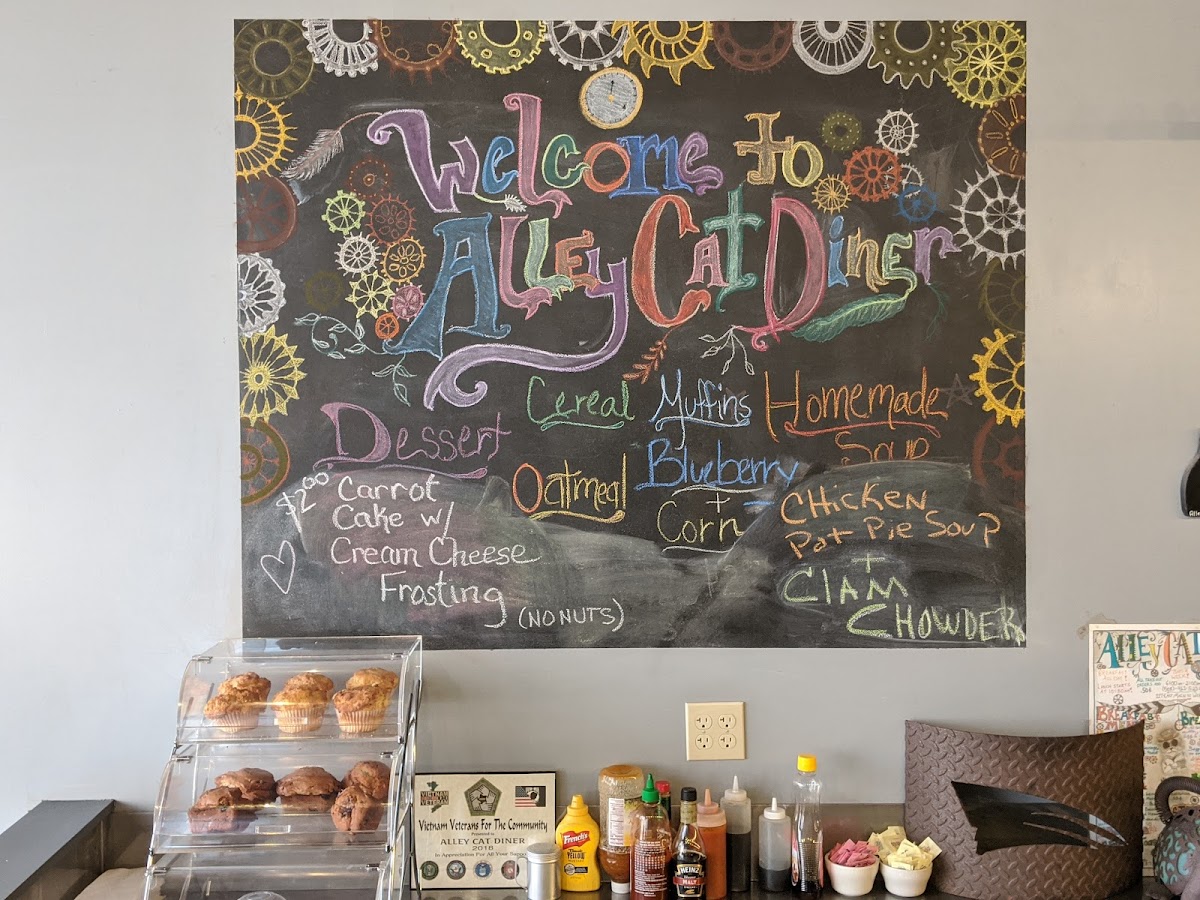 Welcome to
Alley Cat Diner
Dessert
$2.00 Carrot
Cake w/
Cream Cheese
Frosting
(NO NUTS)
Cereal
Oatmeal
Muffins
Blueberry
+
Corn
Homemade
Soup
CHICKEN
Pot Pie Soup
+
CLAM
CHOWDER
ALLEY CAT
BREAK
Vietnam Veterans For The Community
Presented to
ALLEY CAT DINER
2018
In Appreciation For All Your
French's
Yellow
HEINZ
MALT